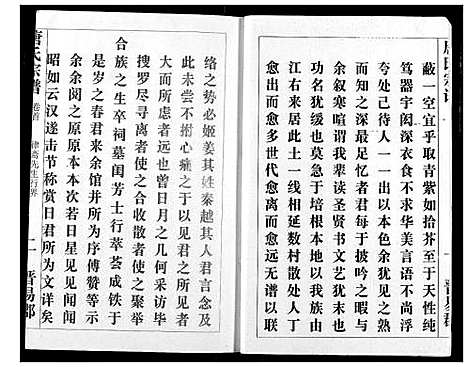 蔽一空宜乎取青紫如拾芥至于天性纯
笃器宇闳深衣食不求华美言语不尚浮
夸处己待人一一出本色余犹见之熟
余叙寒暄谓我辈读圣贤书文艺犹末也
最不可忘者君每于披吟之暇与
功名犹缓也莫急于培根本地以我族由
江右来居此土一线相延数村散处人丁
愈出而愈多世代愈离而愈远无谱以联
络之势必姬姜其姓秦越其人君言念及
此未尝不拊心痛之于以见君之所见者
大而所虑者远也曾日月之几何采访毕
搜罗尽寻离者使之合收散者使之聚举
合
族之生卒祠墓闺芳士行荟萃成铁于
是岁之春君来余馆并所为序傅赞等示
余余阅之原原本本次若日星见见闻闻
昭如云汉遂击节称赏日君所为文详矣
唐氏宗谱
卷首
律斋先生行畧
二
晋昜郡